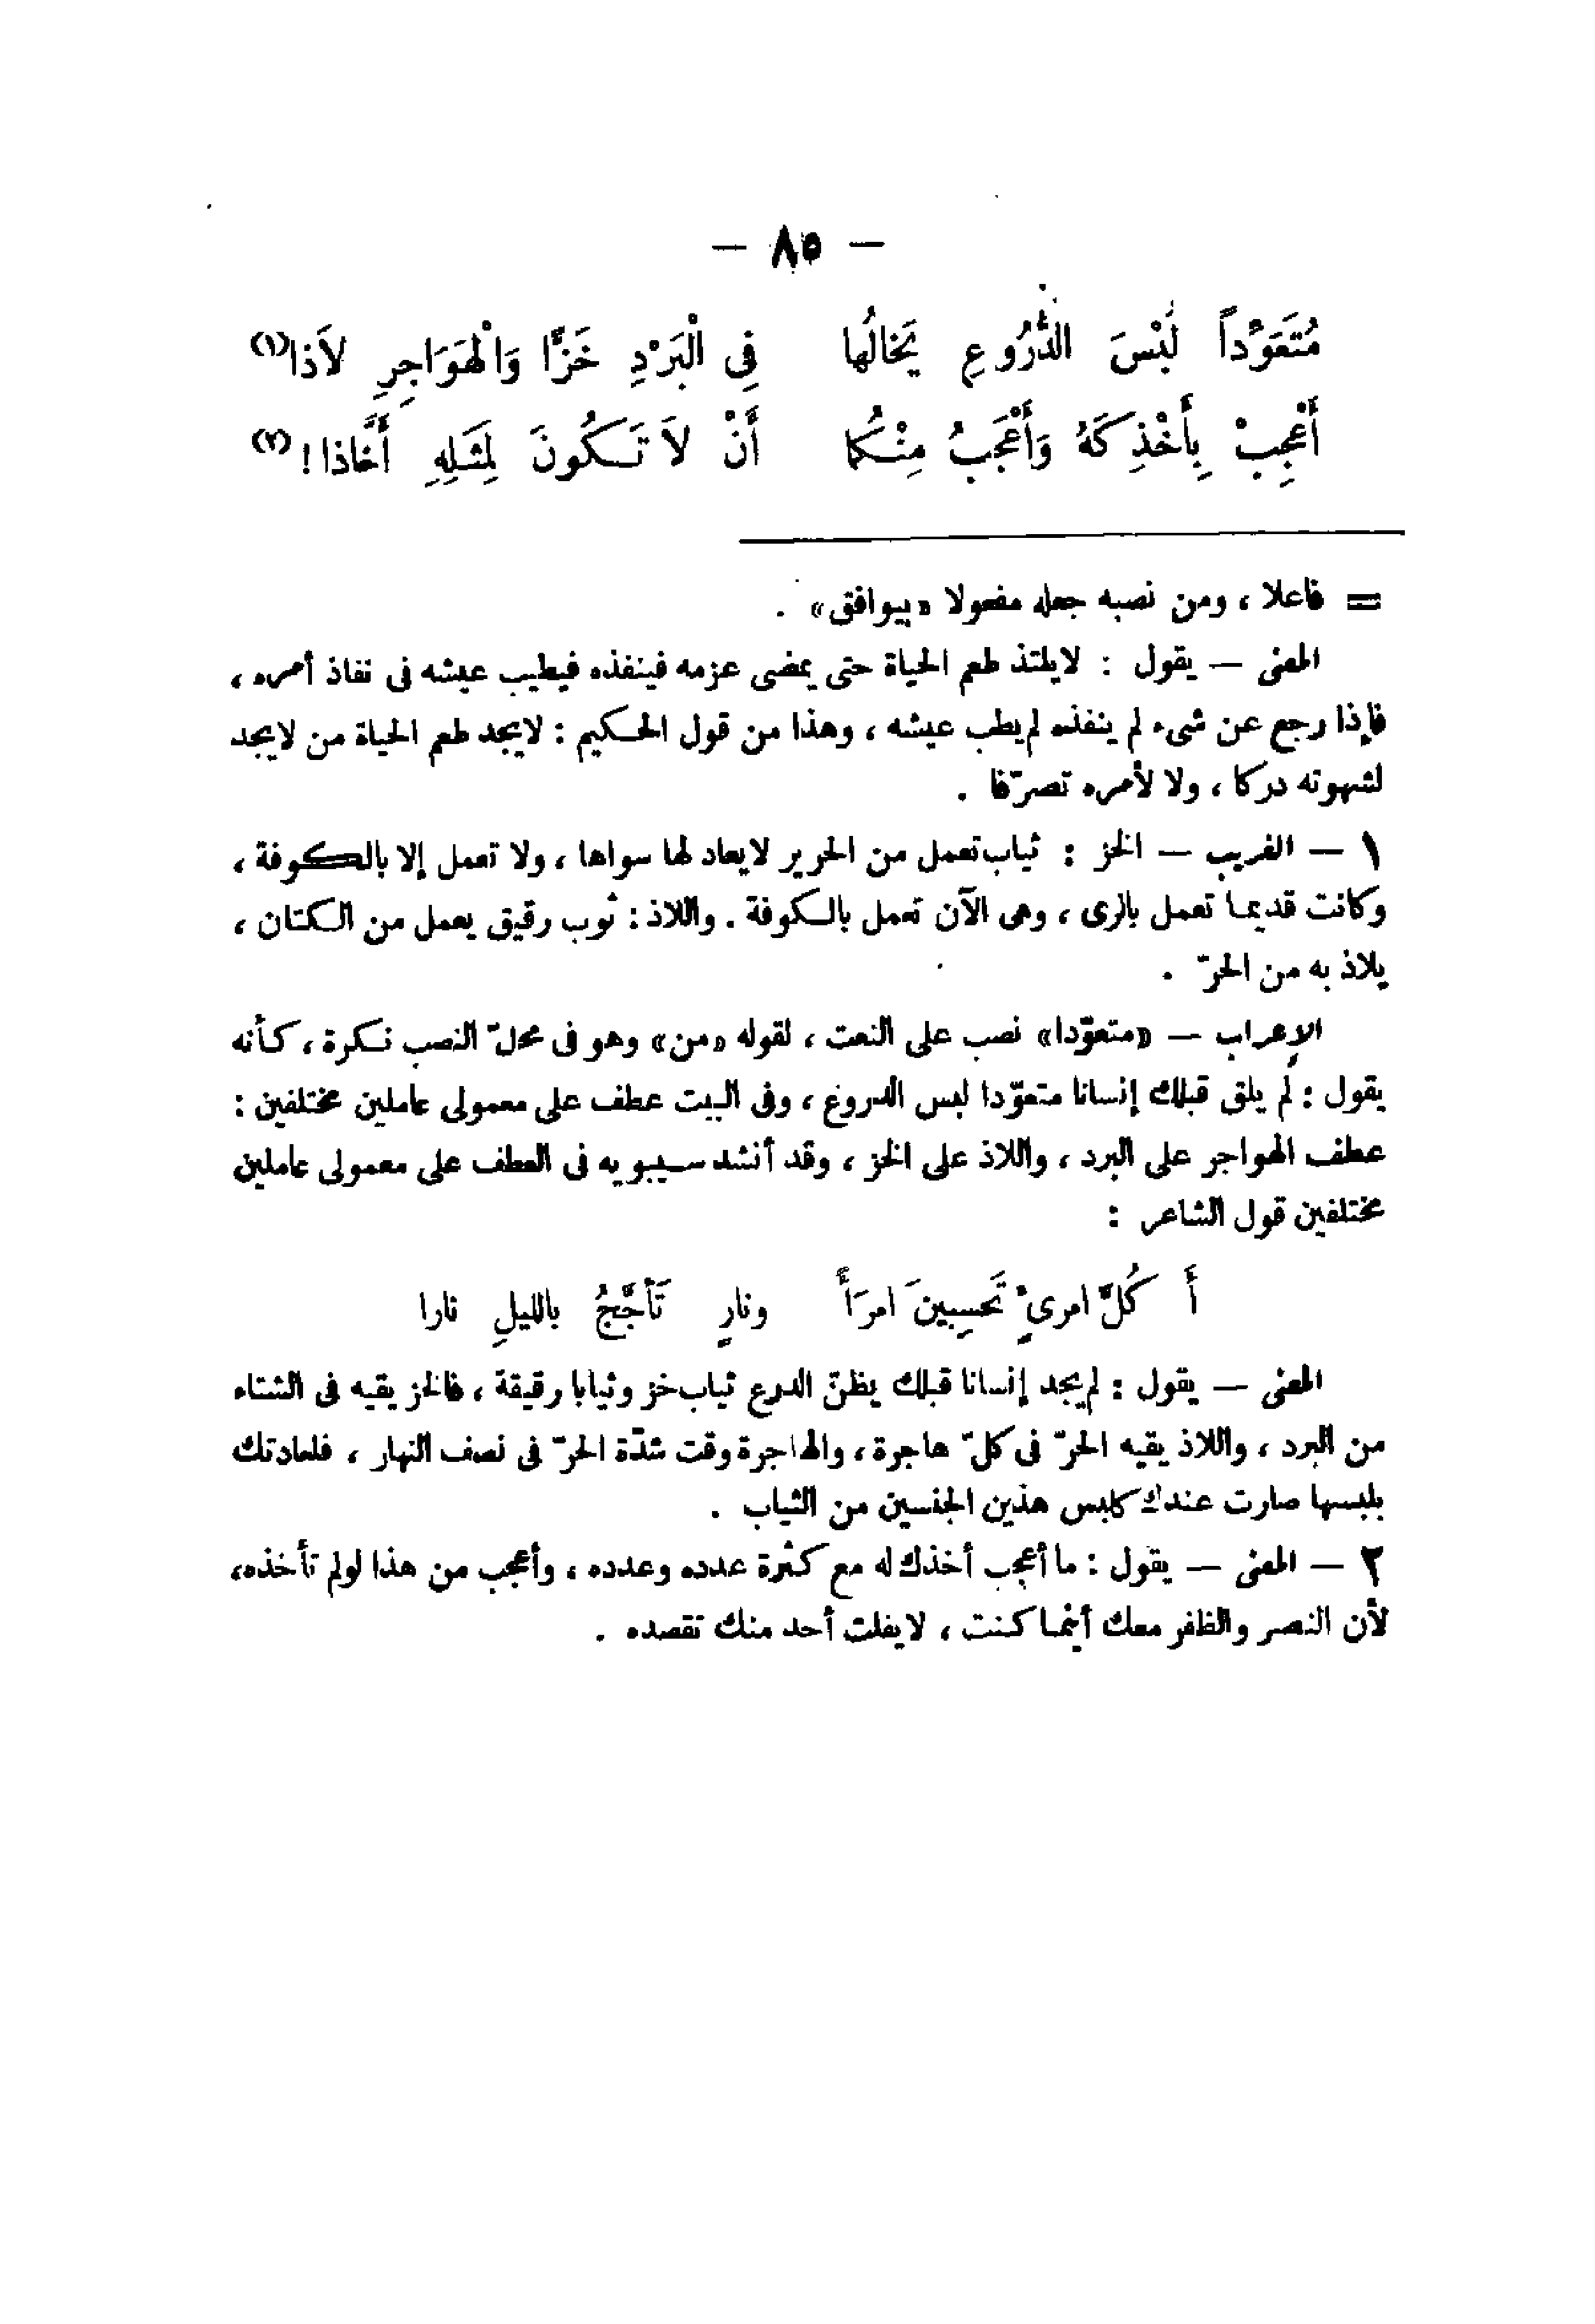 — ٨٥ —
مُتَعَوِّداً لُبْسَ الدُّرُوعِ يَخَالُها فِى الْبَرْدِ خَزًّا وَالْهَوَاجِرِ لاَذا(١)
أَعْجِبْ بِأَخْذِكَهُ وَأَعْجَبُ مِنْكُما أَنْ لاَ تَكُونَ لِمَثِلِهِ أَخَّاذا ! (٢)
= فاعلا ، ومن نصبه جعله مفعولا «بيوافق» .
المعنى — يقول : لايلتذ طعم الحياة حتى يمضى عزمه فينفذه فيطيب عيشه فى نفاذ أمره ،
فإذا رجع عن شىء لم ينفذه لم يطب عيشه ، وهذا من قول الحكيم : لايجد طعم الحياة من لايجد
لشهوته دركا ، ولا لأمره تصرّفا .
١ — الغريب — الخز : ثياب تعمل من الحرير لايعاد لها سواها ، ولا تعمل إلا بالكوفة ،
وكانت قديما تعمل بالرى ، وهى الآن تعمل بالكوفة . واللاذ : ثوب رقيق يعمل من الكتان ،
يلاذ به من الحرّ .
الإعراب — «متعوّدا» نصب على النعت ، لقوله «من» وهو فى محلّ النصب نكرة ، كأنه
يقول : لم يلق قبلك إنسانا متعوّدا لبس الدروع ، وفى البيت عطف على معمولى عاملين مختلفين :
عطف الهواجر على البرد ، واللاذ على الخز ، وقد أنشد سيبويه فى العطف على معمولى عاملين
مختلفين قول الشاعر :
أَ كُلَّ امرىٍٔ تَحسِبينَ امرَأً ونارٍ تَأَجَّجُ بالليلِ نارا
المعنى — يقول : لم يجد إنسانا قبلك يظنّ الدرع ثياب خز وثيابا رقيقة ، فالخز يقيه فى الشتاء
من البرد ، واللاذ يقيه الحرّ فى كلّ هاجرة ، والهاجرة وقت شدّة الحرّ فى نصف النهار ، فلعادتك
بلبسها صارت عندك كلبس هذين الجنسين من الثياب .
٢ — المعنى — يقول : ما أعجب أخذك له مع كثرة عدده وعدده ، وأعجب من هذا لولم تأخذه،
لأن النصر والظفر معك أينما كنت ، لايفلت أحد منك تقصده .